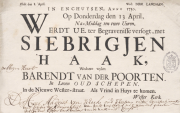 IN ENCHUYSEN, Anno 1730.
Op Donderdag den 13 April,
Na-Middag ten twee Uuren,
WERDT UE. ter Begraavenisse versogt, met
SIEBRIGJEN
HAAK,
BARENDT VAN DER POORTEN.
In Leeven OUD SCHEPEN.
In de Nieuwe Wester-Straat. Als Vriend in Huys te komen.
Wester Kerk.